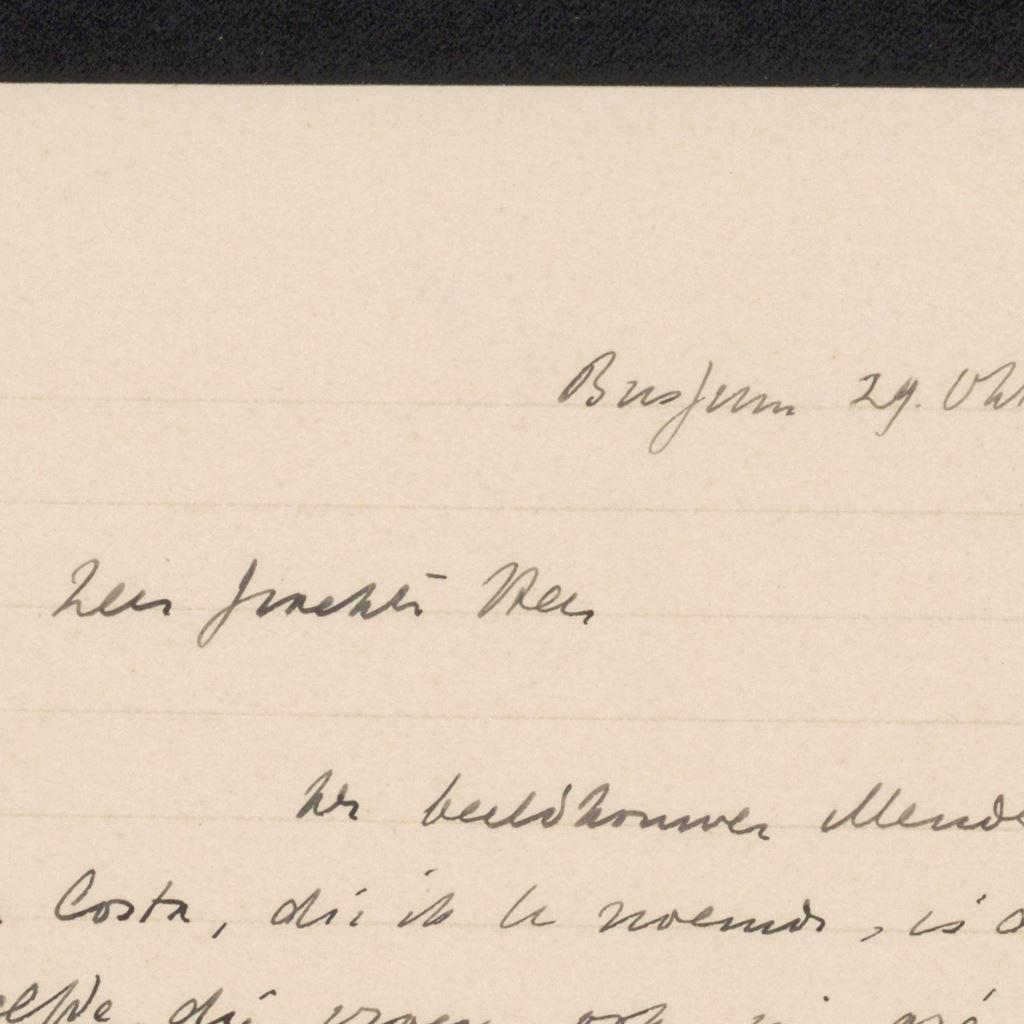 Bussum 29. Okt
Zeer geachte Heer
De beeldhouwer Mende
Costa, die ik U noemde, is d
die vroeg ook in